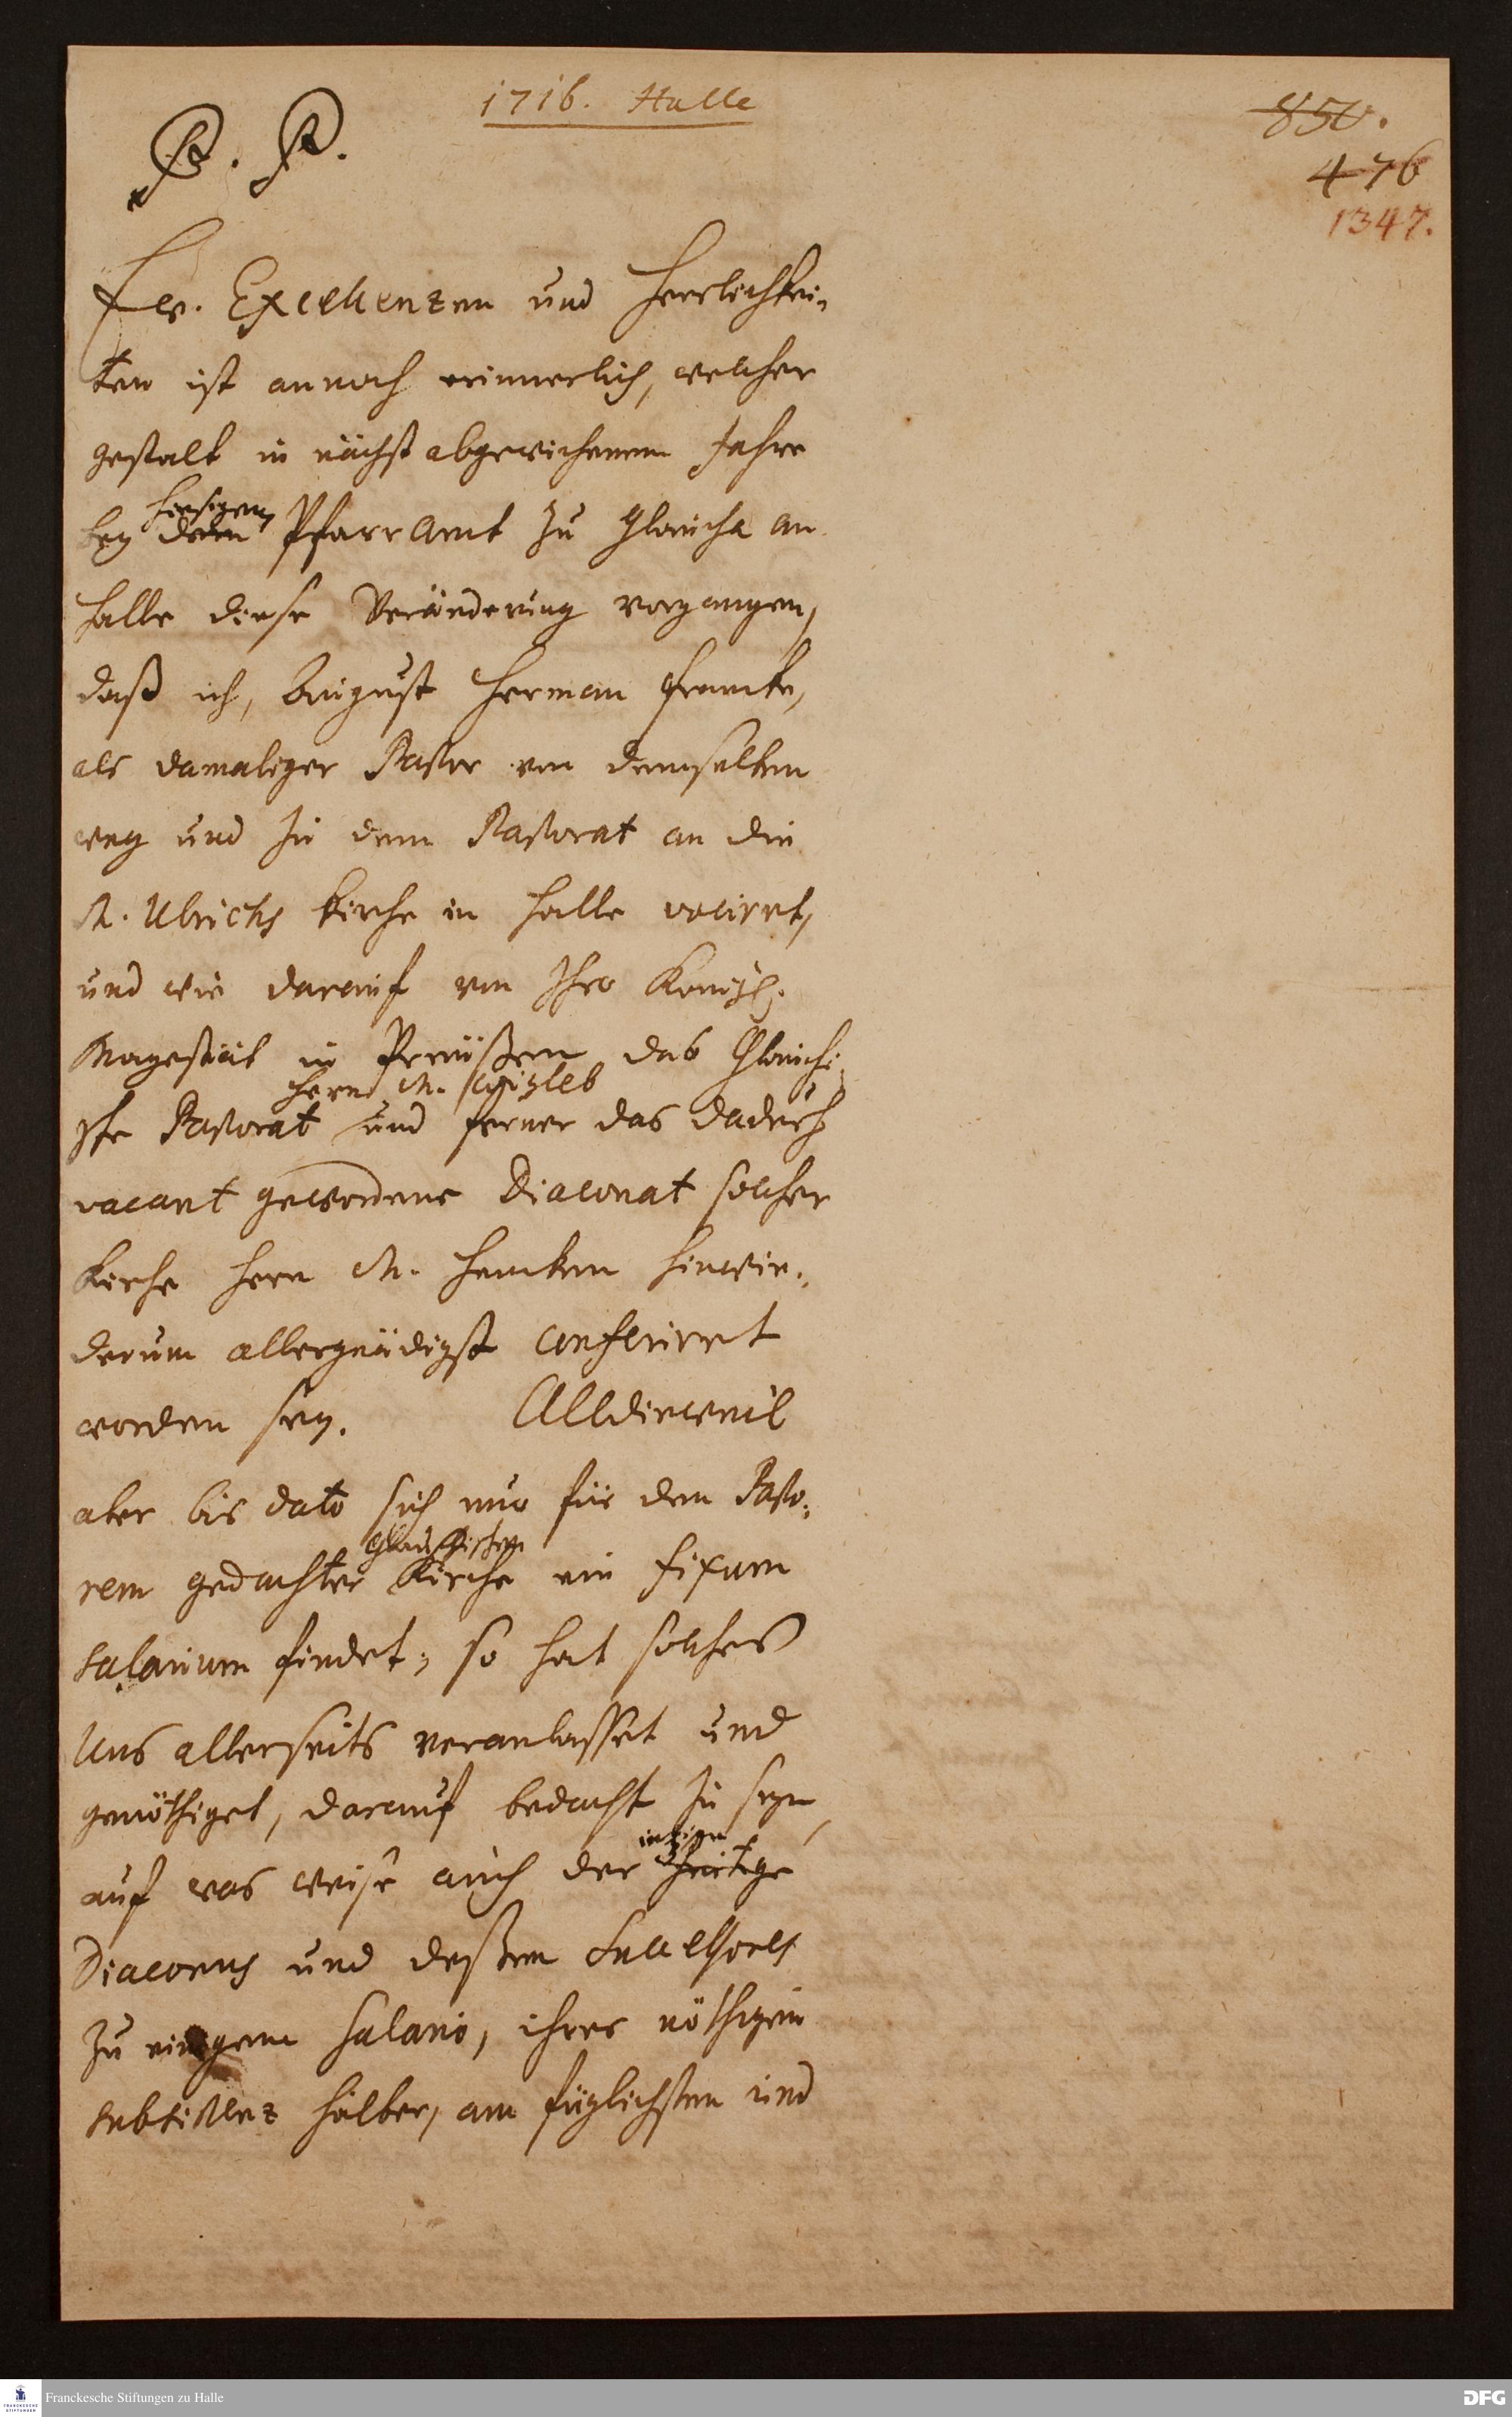 1716. Halle
850.
476
1347.
P. P.
Ew. Excellenzen und Herrlichkei-
ten ist annoch erinnerlich, welcher
gestalt in nächst abgewichenem Jahre
bey hiesigem dem PfarrAmt zu Glaucha an
Halle diese Veränderung vorgangen,
daß ich, August Herman Francke,
als damaliger Pastor von demselben
weg und zu dem Pastorat an die
St. Ulrichs Kirche in Halle vociret,
und wie darauf von Ihro Königl.
Majestät in Preußen das Glauchi-
Herrn M. Wigleb
sche Pastorat und ferner das dadurch
vacant gewordene Diaconat solcher
Kirche Herrn M. Hencken hinwie-
derum allergnädigst conferiret
worden sey. Alldieweil
aber bis dato sich nur für den Pasto-
rem gedachter Glauchischen Kirche ein fixum
salarium findet; so hat solches
Uns allerseits veranlasset und
genöthiget, darauf bedacht zu seyn,
auf was weise auch der ietzige zeitige
Diaconus und deßen Successores
zu einigem Salario, ihrer nöthigen
subsistenz halber, am füglichsten und
Franckesche Stiftungen zu Halle
FRANCKESCHE
STIFTUNGEN
DFG